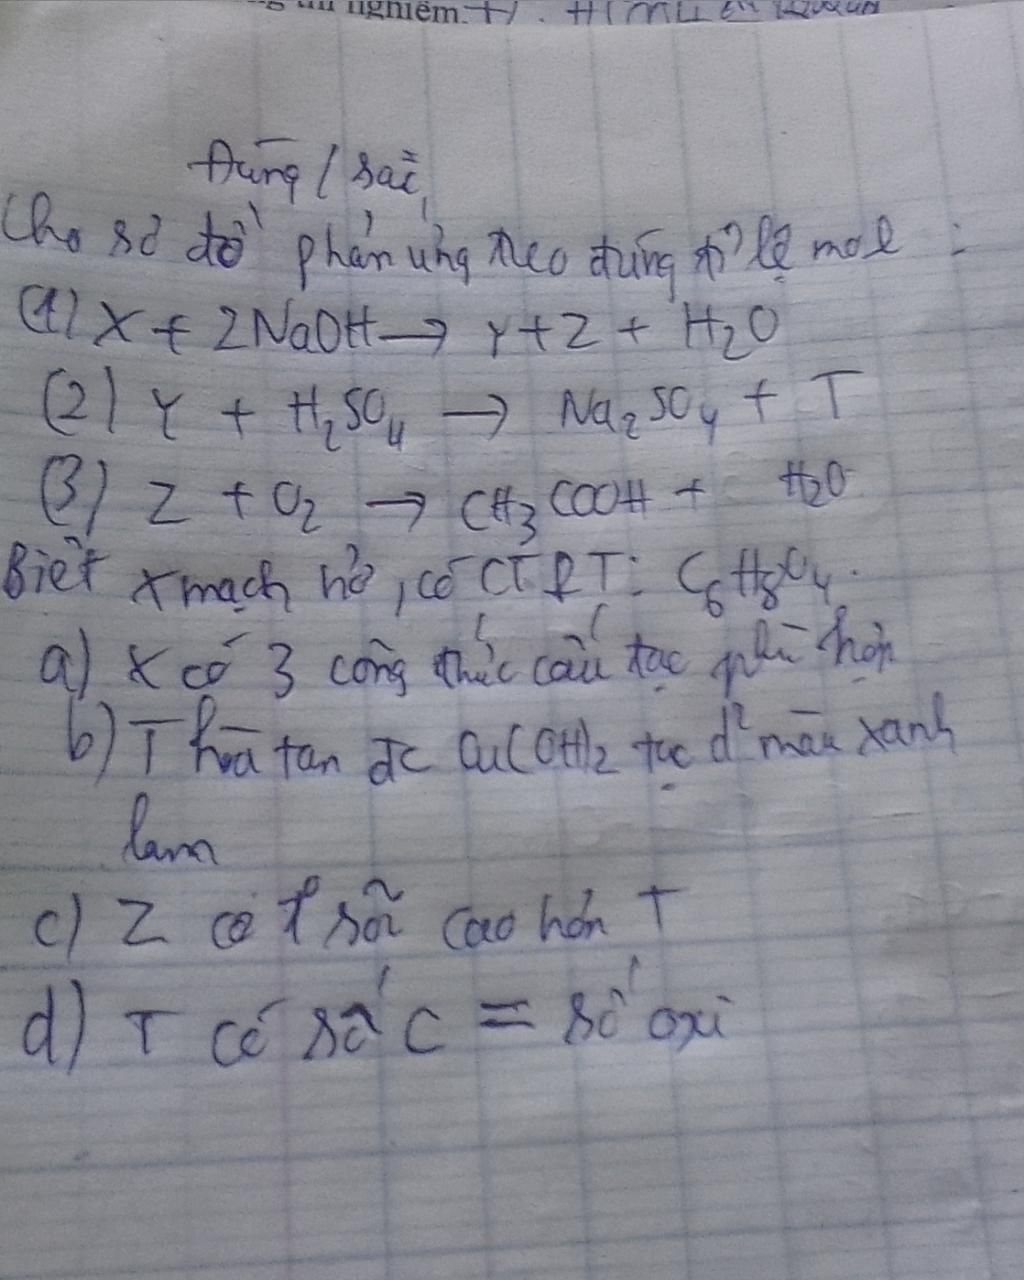 nghiệm.
Đúng / sai
Cho sơ đồ phản ứng theo đúng tỉ lệ mol :
(1) X + 2NaOH → Y + Z + H₂O
(2) Y + H₂SO₄ → Na₂SO₄ + T
(3) Z + O₂ → CH₃COOH + H₂O
Biết X mạch hở, có CTPT: C₆H₈O₄.
a) X có 3 công thức cấu tạo phù hợp
b) T hòa tan đc Cu(OH)₂ tạo d² màu xanh
lam
c) Z có t° sôi cao hơn T
d) T có số C = số oxi